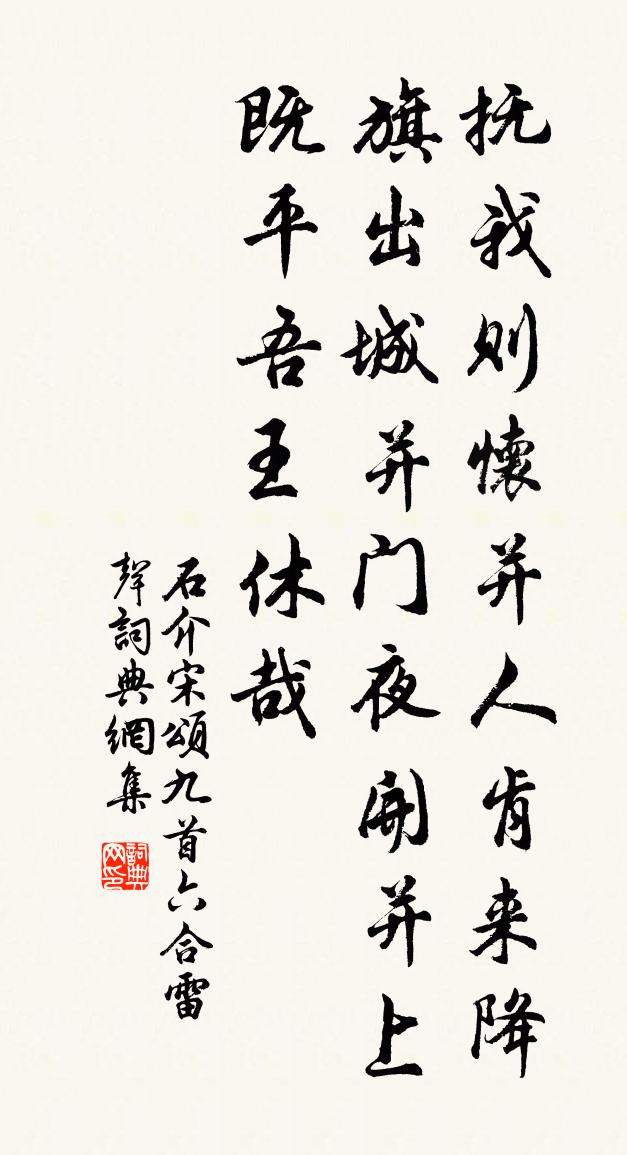 抚我则懷并人肯来降
旗出城并门夜開并上
既平吾王休哉
石介宋頌九首六合雷
聲詞典網集
詞典网印